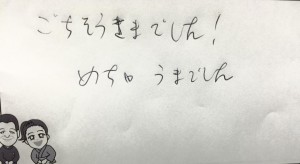 ごちそうさまでした!
めちゃ うまでした